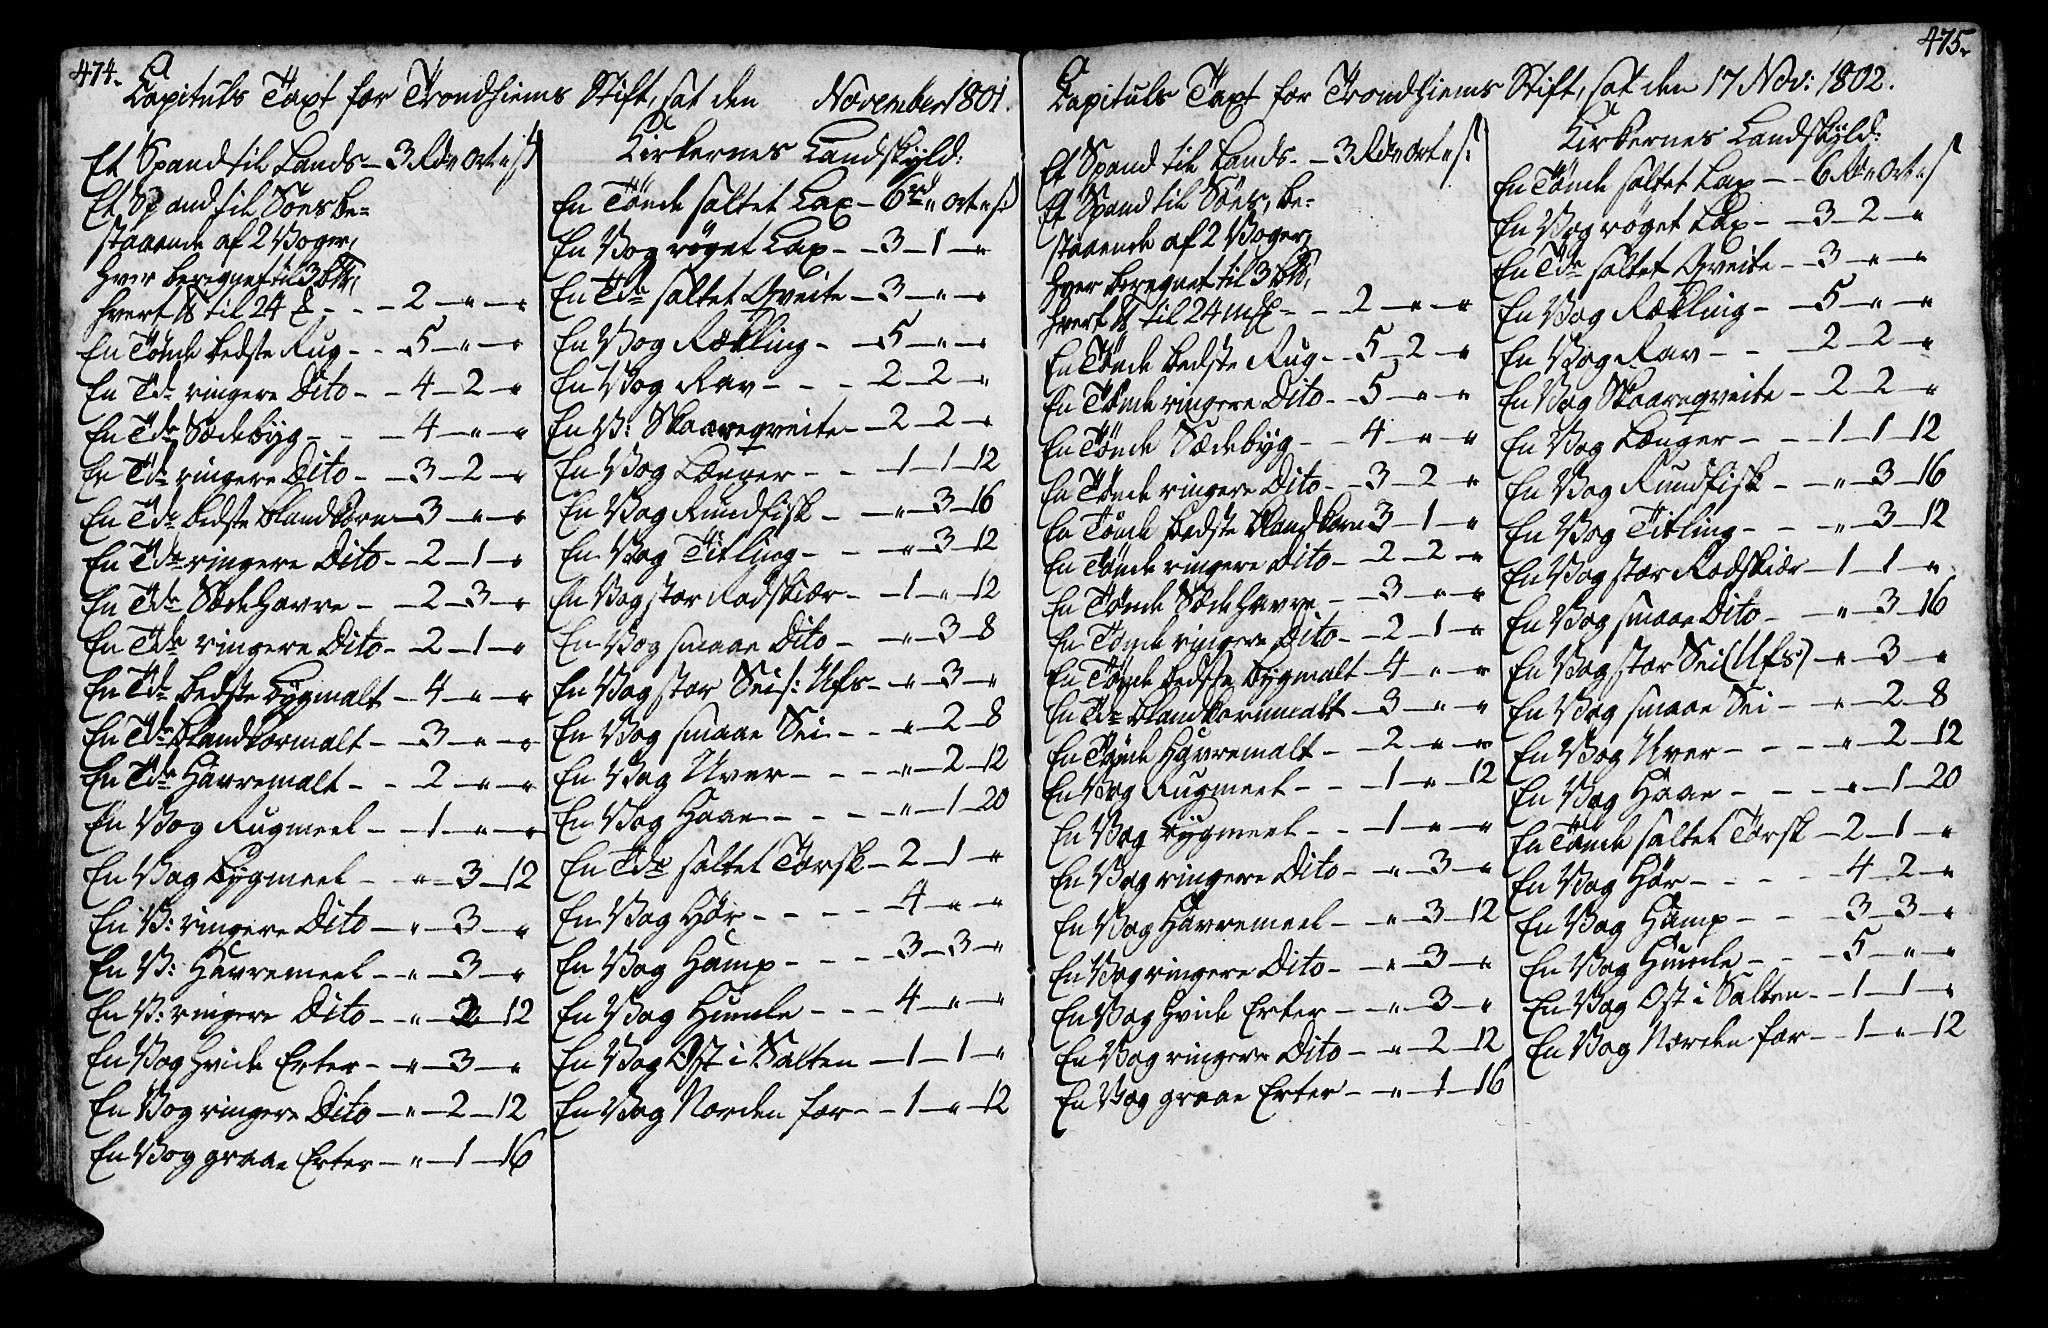 474.
Capituls Taxt for Trondhiems Stift, sat den November 1801.
Et Spand til Lands – 3 Rd " ort " s
Et Spand til Søes be-
staaende af 2 Voger,
hver beregnet til 3 B℔,
hvert ℔ til 24 ℔ – – 2 – " – "
En Tönde bedste Rug – – 5 – " – "
En Tde ringere Dito – – 4 – 2 – "
En Tde Sædebyg – – – 4 – " – "
En Tde ringere Dito – – 3 – 2 – "
En Tde bedste Blandkorn – 3 – " – "
En Tde ringere Dito – – 2 – 1 – "
En Tde Sædehavre – – 2 – 3 – "
En Tde ringere Dito – – 2 – 1 – "
En Tde bedste Bygmalt – 4 – " – "
En Tde Blandkormalt – – 3 – " – "
En Tde Havremalt – – 2 – " – "
En Vog Rugmeel – – 1 – " – "
En Vog Bygmeel – – " – 3 – 12
En V: ringere Dito – " – 3 – "
En V: Havremeel – – " – 3 – "
En V: ringere Dito – – " – 2 – 12
En Vog hvide Erter – – " – 3 – "
En Vog ringere Dito – " – 2 – 12
En Vog graae Erter – " – 1 – 16
Kirkernes Landskyld:
En Tönde saltet Lax – 6 rd " ort " s:
En Vog röget Lax – – 3 – 1 – "
En Tde saltet Qveite – 3 – " – "
En Vog Rækling – – 5 – " – "
En Vog Rav – – – 2 – 2 – "
En V: Skaareqveite – 2 – 2 – "
En Vog Længer – – – 1 – 1 – 12
En Vog Rundfisk – – " – 3 – 16
En Vog Titling – – – " – 3 – 12
En Vog stor Rodskiær – – 1 – " – 12
En Vog smaae Dito – – " – 3 – 8
En Vog stor Sei /: Ufs – " – 3 – "
En Vog smaae Sei – – " – 2 – 8
En Vog Uver – – – " – 2 – 12
En Vog Haae – – – – " – 1 – 20
En Tde saltet Torsk – 2 – 1 – "
En Vog Hör – – – – 4 – " – "
En Vog Hamp – – – 3 – 3 – "
En Vog Humle – – – 4 – " – "
En Vog Ost i Salten – 1 – 1 – "
En Vog Norden for – – 1 – " – 12
475.
Capituls Taxt for Trondhiems Stift, sat den 17 Nov: 1802.
Et Spand til Lands – – 3 Rd " ort " s:
Et Spand til Söes, be-
staaende af 2 Voger,
hver beregnet til 3 B℔,
hvert ℔ til 24 m℔ – – 2 – " – "
En Tönde bedste Rug – – 5 – 2 – "
En Tönde ringere Dito – – 5 – " – "
En Tönde Sædebyg – – 4 – " – "
En Tönde ringere Dito – – 3 – 2 – "
En Tönde bedste Blandkorn 3 – 1 – "
En Tönde ringere Dito – – 2 – 2 – "
En Tönde Sædehavre – – 3 – " – "
En Tönde ringere Dito – – 2 – 1 – "
En Tönde bedste Bygmalt – 4 – " – "
En Tde Blandkornmalt – 3 – " – "
En Tönde Havremalt – – 2 – " – "
En Vog Rugmeel – – – 1 – " – 12
En Vog Bygmeel – – – 1 – " – "
En Vog ringere Dito – – " – 3 – "
En Vog Havremeel – – " – 3 – 12
En Vog ringere Dito – – " – 3 – "
En Vog hvide Erter – – " – 3 – "
En Vog ringere Dito – – " – 2 – 12
En Vog graae Erter – – " – 1 – 16
Kirkernes Landskyld:
En Tönde saltet Lax – – 6 Rd " ort " s
En Vog röget Lax – – 3 – 2 – "
En Tde saltet Qveite – – 3 – " – "
En Vog Rækling – – 5 – " – "
En Vog Rav – – – 2 – 2 – "
En Vog Skaareqveite – 2 – 2 – "
En Vog Længer – – – 1 – 1 – 12
En Vog Rundfisk – – " – 3 – 16
En Vog Titling – – – " – 3 – 12
En Vog stor Rodskiær – 1 – 1 – "
En Vog smaae Dito – – " – 3 – 16
En Vog stor Sei (Ufs:) – " – 3 – "
En Vog smaae Sei – – " – 2 – 8
En Vog Uver – – – " – 2 – 12
En Vog Haae – – – " – 1 – 20
En Tönde saltet Torsk – 2 – 1 – "
En Vog Hör – – – – 4 – 2 – "
En Vog Hamp – – 3 – 3 – "
En Vog Humle – – 5 – " – "
En Vog Ost i Salten – – 1 – 1 – "
En Vog Norden for – – 1 – " – 12